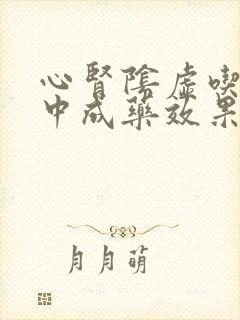 心腎陰虛喫
中成藥效果
月月萌